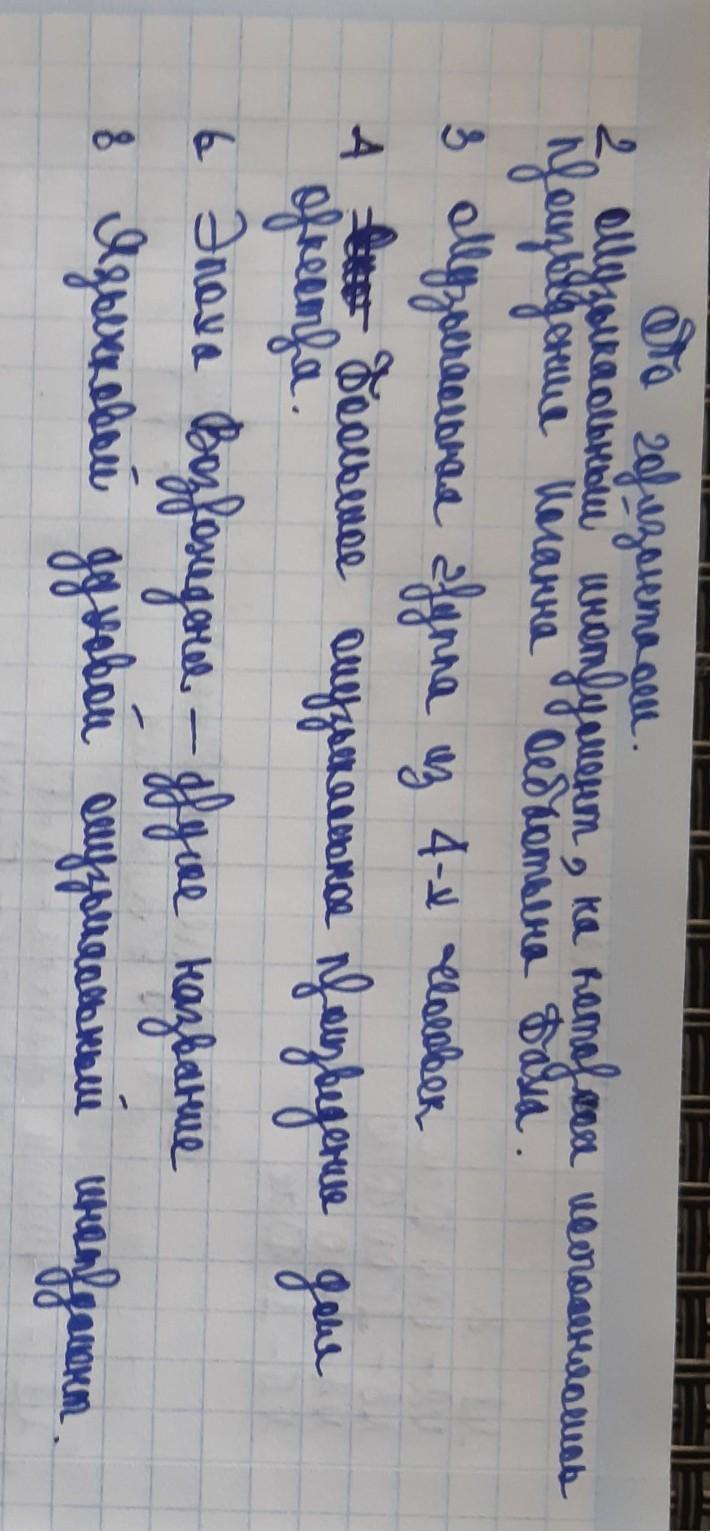 По горизонтали.
2 Музыкальный инструмент, на котором исполнялись
произведения Иоганна Себастьяна Баха.
3 Музыкальная группа из 4-х человек
4 Большое музыкальное произведение для
оркестра.
6 Эпоха Возрождения – другое название
8 Язычковый духовой музыкальный инструмент.